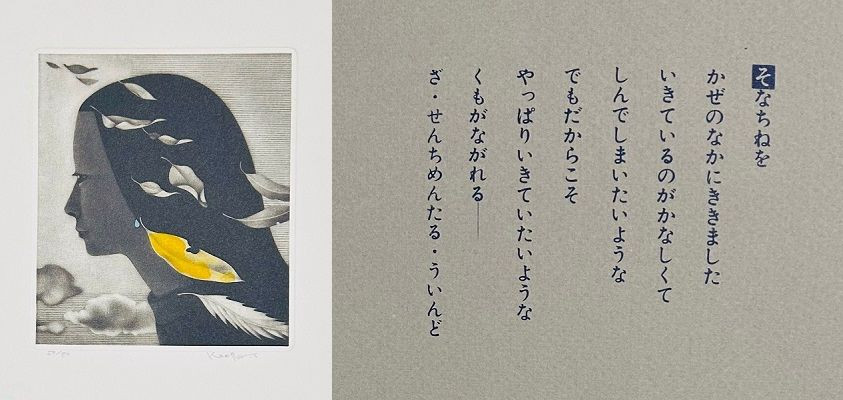 そなちねを
かぜのなかにききました
いきているのがかなしくて
しんでしまいたいような
でもだからこそ
やっぱりいきていたいような
くもがながれる——
ざ・せんちめんたる・ういんど